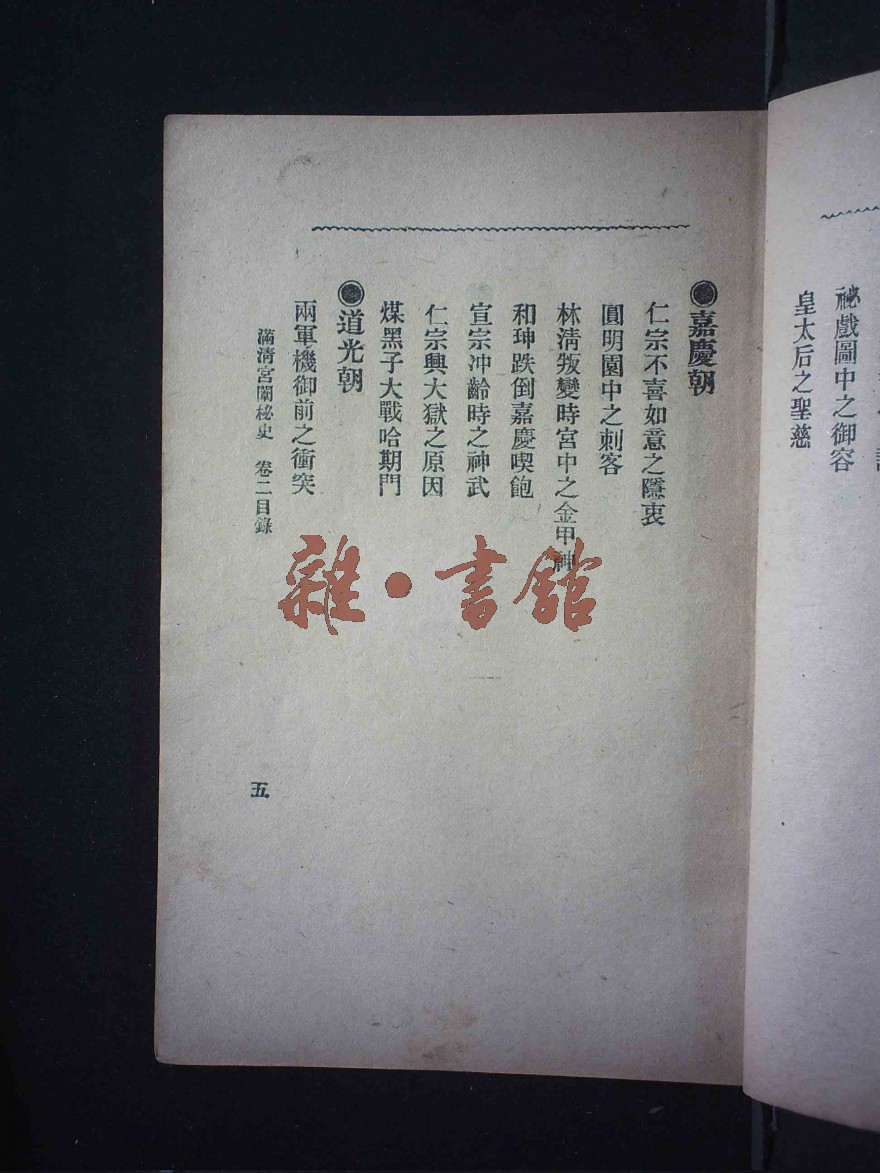 祕戲圖中之御容
皇太后之聖慈
嘉慶朝
仁宗不喜如意之隱衷
圓明園中之刺客
林清叛變時宮中之金甲神
和珅跌倒嘉慶喫飽
宣宗冲齡時之神武
仁宗興大獄之原因
煤黑子大戰哈期門
道光朝
兩軍機御前之衝突
滿清宮闈秘史 卷二目錄
五
雜・書館